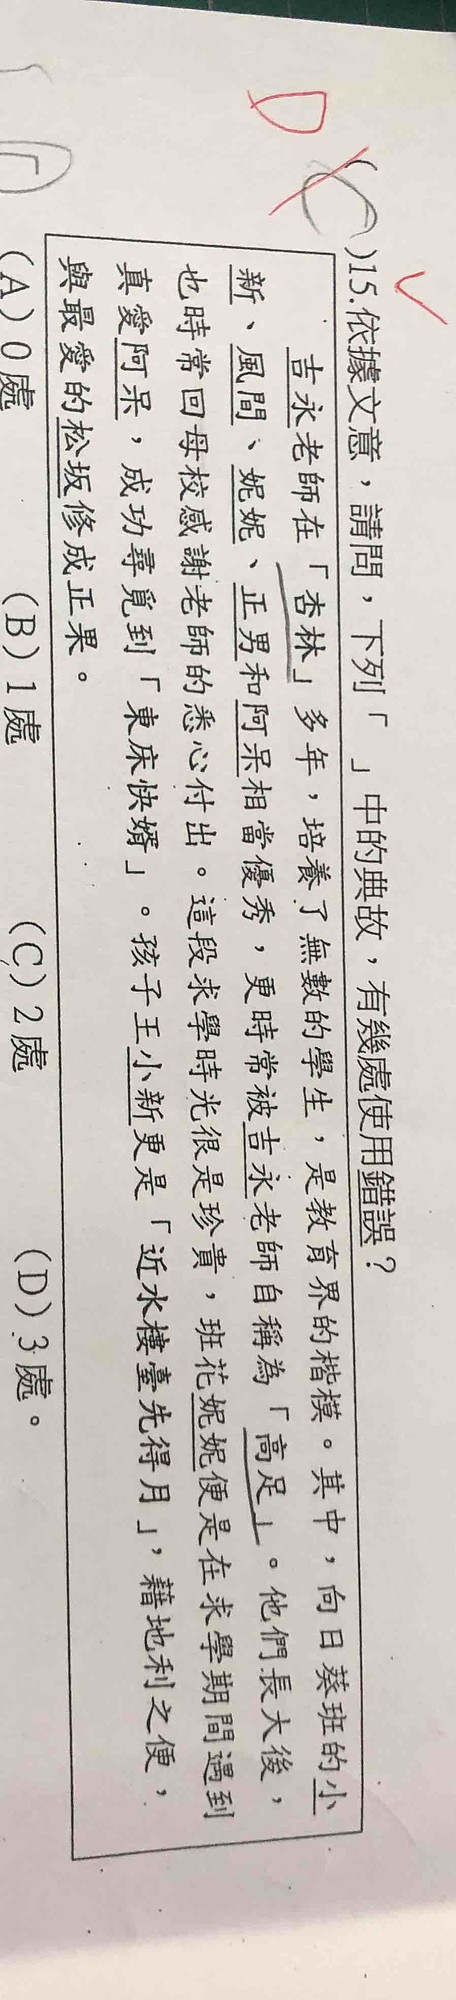 D
(C)15.依據文意，請問，下列「 」中的典故，有幾處使用錯誤？
吉永老師在「杏林」多年，培養了無數的學生，是教育界的楷模。其中，向日葵班的小
新、風間、妮妮、正男和阿呆相當優秀，更時常被吉永老師自稱為「高足」。他們長大後，
也時常回母校感謝老師的悉心付出。這段求學時光很是珍貴，班花妮妮便是在求學期間遇到
真愛阿呆，成功尋覓到「東床快婿」。孩子王小新更是「近水樓臺先得月」，藉地利之便，
與最愛的松坂修成正果。
(A)0處 (B)1處 (C)2處 (D)3處。